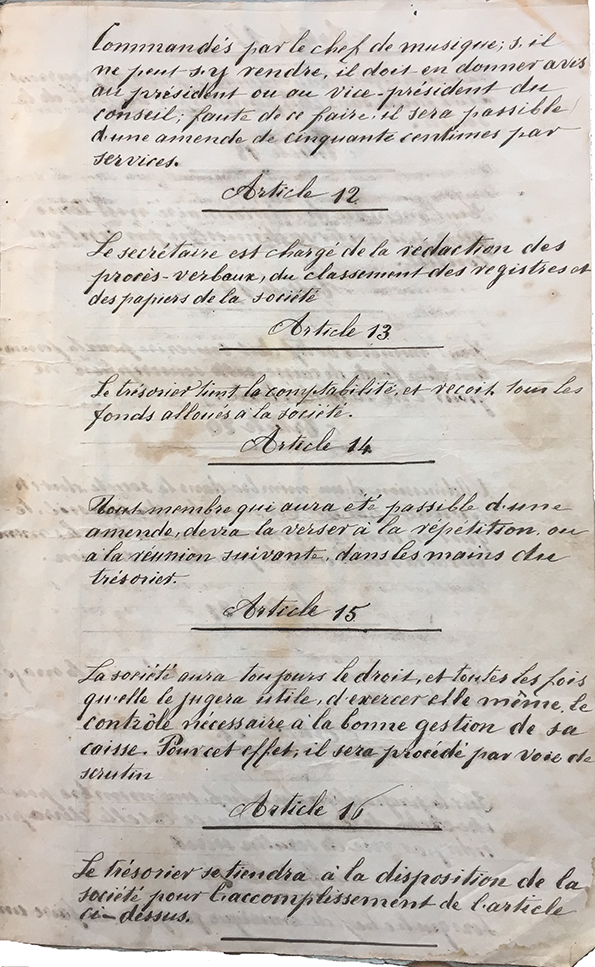 Commandés par le chef de musique; s'il
ne peut s'y rendre, il doit en donner avis
au président ou au vice-président du
conseil; faute de ce faire, il sera passible
d'une amende de cinquante centimes par
services.
Article 12
Le secrétaire est chargé de la rédaction des
procès-verbaux, du classement des registres et
des papiers de la société
Article 13
Le trésorier tient la comptabilité, et reçoit tous les
fonds alloués à la société.
Article 14
Tout membre qui aura été passible d'une
amende, devra la verser à la répétition, ou
à la réunion suivante, dans les mains du
trésorier.
Article 15
La société aura toujours le droit, et toutes les fois
qu'elle le jugera utile, d'exercer elle même, le
contrôle nécessaire à la bonne gestion de sa
caisse. Pour cet effet, il sera procédé par voie de
scrutin
Article 16
Le trésorier se tiendra à la disposition de la
société pour l'accomplissement de l'article
ci-dessus.